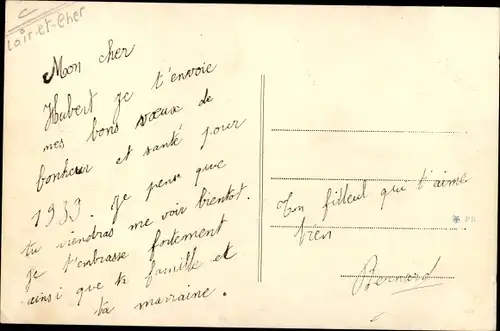 Loir-et-Cher
Mon cher
Hubert je t'envoie
mes bons vœux de
bonheur et santé pour
1933. Je pense que
tu viendras me voir bientot.
je t'embrasse fortement
ainsi que ta famille et
ta marraine.
Ton filleul qui t'aime
bien
Bernard